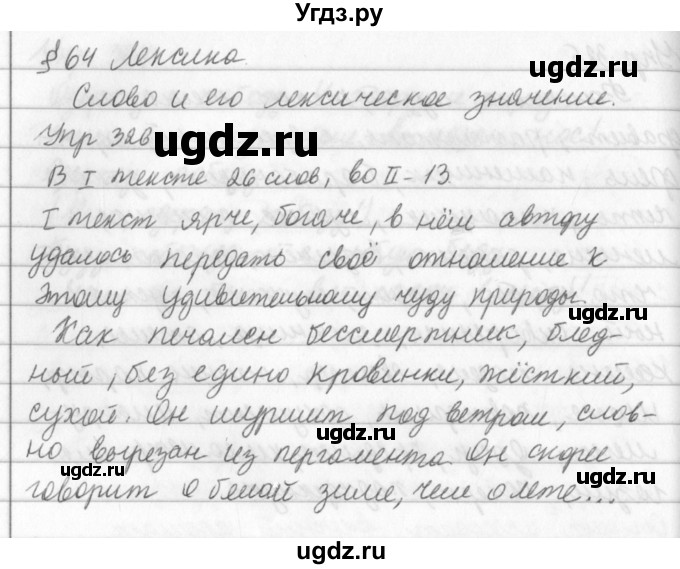 Угдз.ру
§64 Лексика.
ugdz.ru
Слово и его лексическое значение.
Упр 326
ugdz.ru
В I тексте 26 слов, во II - 13.
I текст ярче, богаче, в нём автору
удалось передать своё отношение к
этому удивительному чуду природы.
ugdz.ru
Как печален бессмертник, блед-
ный, без едино кровинки, жёсткий,
сухой. Он шуршит под ветром, слов-
ugdz.ru
но вырезан из пергамента. Он скорее
ugdz.ru
ugdz.ru
говорит о белой зиме, чем о лете...
ugdz.ru